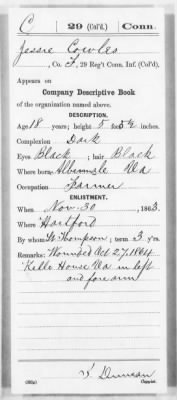 C 29 (Col'd.) Conn.
Jessie Cowles
, Co. F, 29 Reg't Conn. Inf. (Col'd).
Appears on
Company Descriptive Book
of the organization named above.
DESCRIPTION.
Age 18 years; height 5 feet 5½ inches.
Complexion Dark
Eyes Black ; hair Black
Where born Va
Occupation Farmer
ENLISTMENT.
When Nov. 30 , 1863.
Where Hartford
By whom Thompson; term 3 y'rs.
Remarks: Wounded Oct 27, 1864
Kelle House Va in left
and fore arm
Duncan
Copyist.